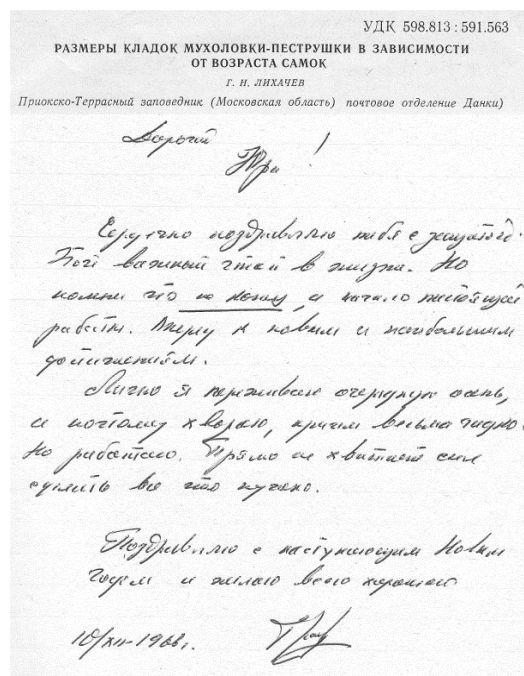 УДК 598.813 : 591.563
РАЗМЕРЫ КЛАДОК МУХОЛОВКИ-ПЕСТРУШКИ В ЗАВИСИМОСТИ
ОТ ВОЗРАСТА САМОК
Г. Н. ЛИХАЧЕВ
Приокско-Террасный заповедник (Московская область) почтовое отделение Данки)
Дорогой
Юра!
Сердечно поздравляю тебя с защитой.
важный этап в жизни. Но
помни что не конец, а начало настоящей
работы. Вперед к новым и наибольшим
достижениям.
Лично я переживаю очередную осень,
и потому хвораю, причем весьма
Но работаю. Прямо не хватает сил
сделать все что нужно.
Поздравляю с наступающим Новым
годом и желаю всего хорошего
10/XII-1968г.